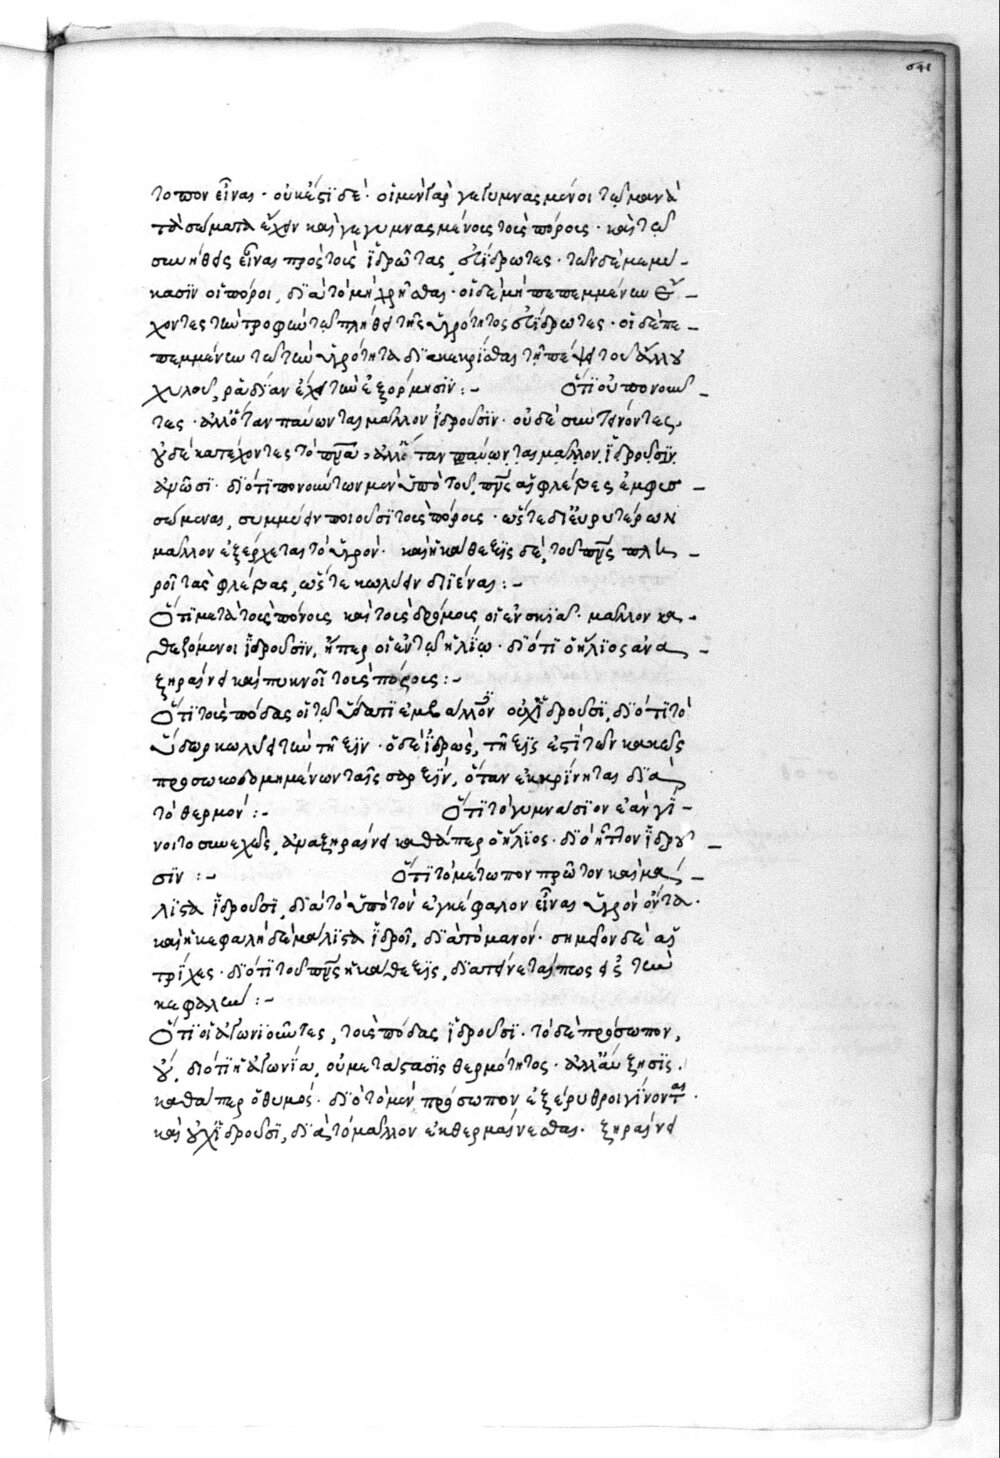 641
τοπον εἶναι · οὐκέτι δέ · οἱ μὲν γὰρ γεγυμνασμένοι τῶ μανὰ
τὰ σώματα ἔχειν καὶ γεγυμνασμένοις τοῖς πόροις · καὶ τῶ
συνήθεις εἶναι πρὸς τοὺς ἱδρῶτας, εὐίδρωτες · τῶν δὲ μεμύ-
κασιν οἱ πόροι, διὰ τὸ μὴ χρῆσθαι · οἱ δὲ μὴ πεπεμμένην ἔ-
χοντες τὴν τροφὴν τῶ πλήθει τῆς ὑγρότητος εὐίδρωτες · οἱ δὲ πε-
πεμμένην τῶ τὴν ὑγρότητα διακεκρίσθαι τῆ πέψει τοῦ ἄλλου
χυλοῦ, ῥαδίαν ἔχει τὴν ἐξόρμησιν :- Ὅτι οὐ πονοῦν-
τες · ἀλλ' ὅταν παύωνται μᾶλλον ἱδροῦσιν · οὐδὲ συντείνοντες,
οὐδὲ κατέχοντες τὸ πνα, ἀλλ' ὅταν παύωνται μᾶλλον ἱδροῦσιν
ἀνῶσι · διότι πονούντων μὲν ὑπὸ τοῦ πνς αἱ φλέβες ἐμφυσ-
σώμεναι, συμμύειν ποιοῦσι τοὺς πόρους · ὥστε δι' εὐρυτέρων
μᾶλλον ἐξέρχεται τὸ ὑγρόν · καὶ ἡ κάθεξις δὲ, τοῦ πνς πλη-
ροῖ τὰς φλέβας, ὥστε κωλύειν διϊέναι :-
Ὅτι μετὰ τοὺς πόνους καὶ τοὺς δρόμους οἱ ἐν σκιᾶ · μᾶλλον κα-
θεζόμενοι ἱδροῦσιν, ἤπερ οἱ ἐν τῶ ἡλίω · διότι ὁ ἥλιος ἀνα-
ξηραίνει καὶ πυκνοῖ τοὺς πόρους :-
Ὅτι τοὺς πόδας οἱ τῶ ὕδατι ἐμβάλλοντες οὐχ ἱδροῦσι, διότι τὸ
ὕδωρ κωλύει τὴν τῆξιν · ὁ δὲ ἱδρώς, τῆξις ἐστὶ τῶν κακῶς
προσωκοδομημένων ταῖς σαρξὶν, ὅταν ἐκκρίνηται διὰ
τὸ θερμόν :- Ὅτι τὸ γυμνάσιον ἐὰν γί-
νοιτο συνεχῶς, ἀναξηραίνει καθάπερ ὁ ἥλιος · διὸ ἧττον ἱδροῦ-
σιν :- Ὅτι τὸ μέτωπον πρῶτον καὶ μά-
λιστα ἱδροῦσι, διὰ τὸ ὑπὸ τὸν ἐγκέφαλον εἶναι ὑγρὸν ὄντα ·
καὶ ἡ κεφαλὴ δὲ μάλιστα ἱδροῖ, διὰ τὸ μανόν · σημεῖον δὲ αἱ
τρίχες · διότι τοῦ πνς ἡ κάθεξις, διατείνεταί πως εἰς τὴν
κεφαλὴν :-
Ὅτι οἱ ἀγωνιῶντες, τοὺς πόδας ἱδροῦσι · τὸ δὲ πρόσωπον,
οὔ, διότι ἡ ἀγωνία, οὐ μετάστασις θερμότητος · ἀλλ' αὔξησις.
καθάπερ ὁ θυμός · διὸ τὸ μὲν πρόσωπον ἐξέρυθροι γίνονται ·
καὶ οὐχ ἱδροῦσι, διὰ τὸ μᾶλλον ἐκθερμαίνεσθαι · ξηραίνει